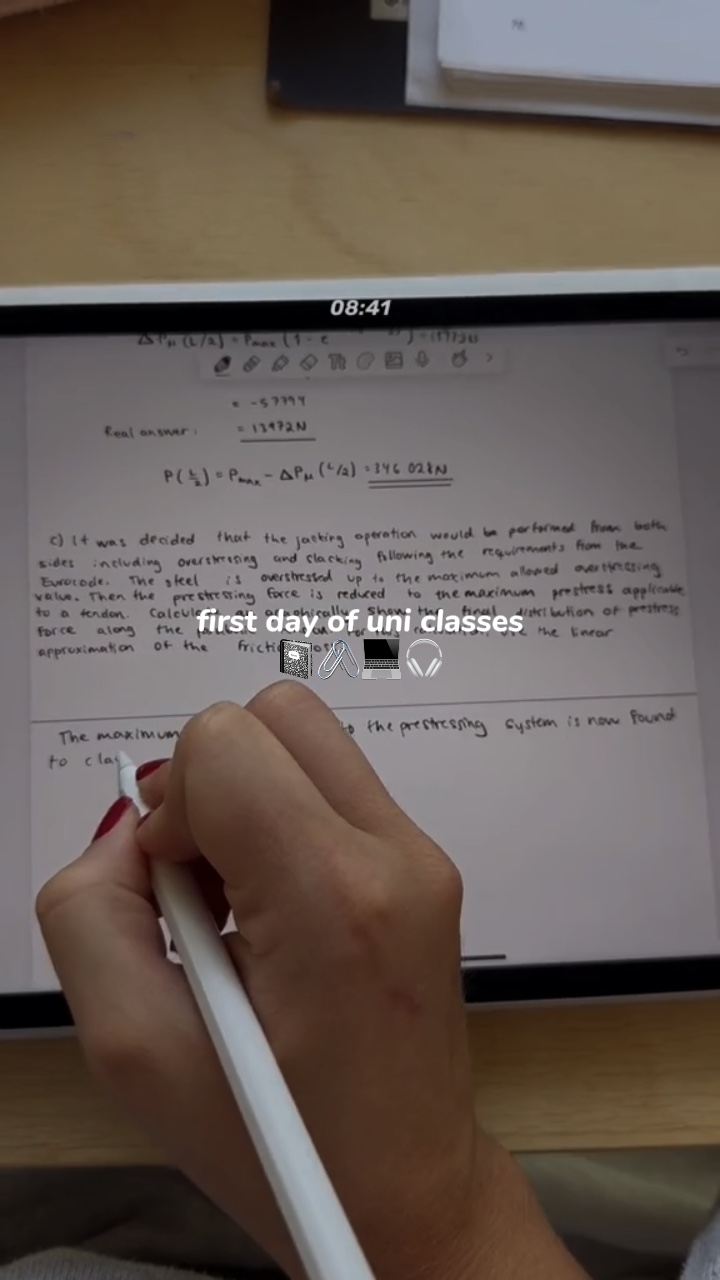 08:41
= -57794
Real answer:
= 13972N
P(L/2) = Pmax - ΔPμ (L/2) = 346 028N
c) It was decided that the jacking operation would be performed from both
sides including overstressing and slacking following the requirements from the
Eurocode. The steel is overstressed up to the maximum allowed overstressing
value. Then the prestressing force is reduced to the maximum prestress applicable
to a tendon. show the final distribution of prestress
first day of uni classes
force along the the linear
approximation of the
The maximum to the prestressing system is now found
to